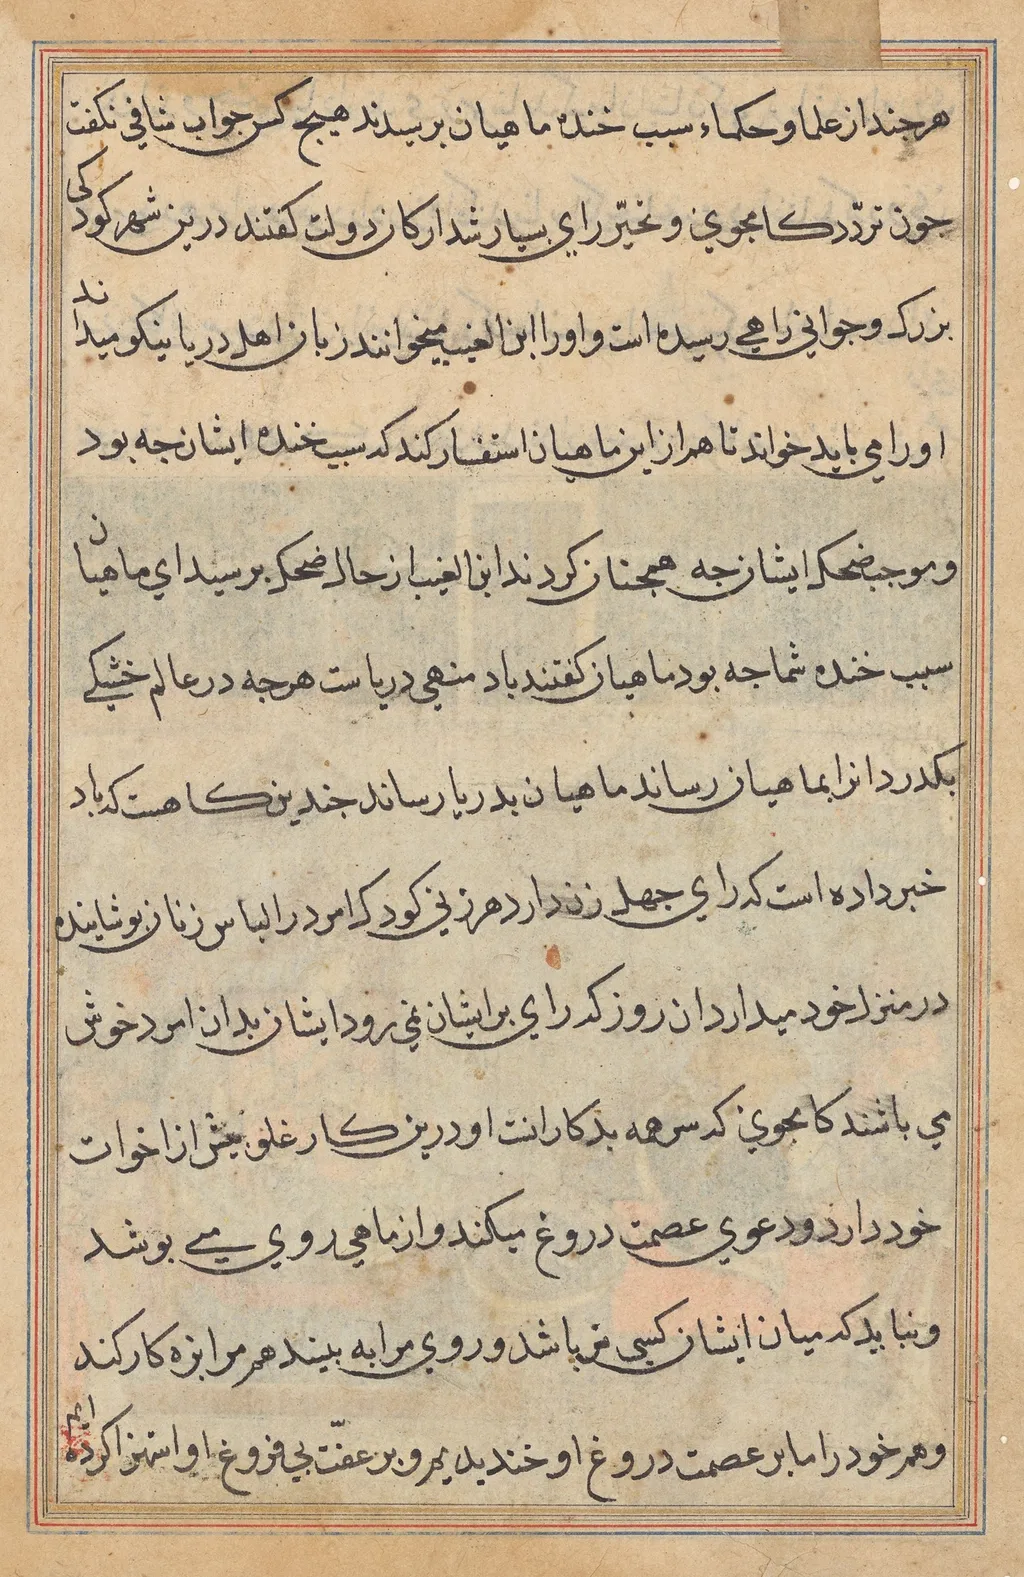 هرجند از علما و حکماء سبب خنده ماهیان برسیدند هیج کس جواب شافی نکفت
جون تردّد کامجوی و تحیّر رای بسیار شد ارکان دولت کفتند درین شهر کودکی
بزرک و جوانی راهی رسیده است و او را ابن الغیب میخوانند زبان اهل دریا نیکو میداند
او را می باید خواند تا هم از این ماهیان استفسار کند که سبب خنده ایشان جه بود
و موجب ضحک ایشان جه همجنان کردند ابن الغیب از حال ضحک برسید ای ماهیان
سبب خنده شما جه بود ماهیان کفتند باد منهی دریاست هرجه در عالم خشکی
بکدرد انرا بماهیان رساند ماهیان بدریا رساند جندین کاهست که باد
خبر داده است که رای جهل زن دارد هر زنی کودک امرد را لباس زنان بوشانیده
در منزل خود میدارد ان روز که رای بر ایشان نمی رود ایشان بدان امرد خوش
می باشند کامجوی که سر همه بدکارانست او درین کار غلو بیش از اخوات
خود دارد و دعوی عصمت دروغ میکند و از ماهی روی می بوشد
و نباید که میان ایشان کسی نر باشد و روی مرا به بیند هم مرا بزه کار کند
و هم خود را ما بر عصمت دروغ او خندیدیم و بر عفّت بی فروغ او استهزا کرده ایم